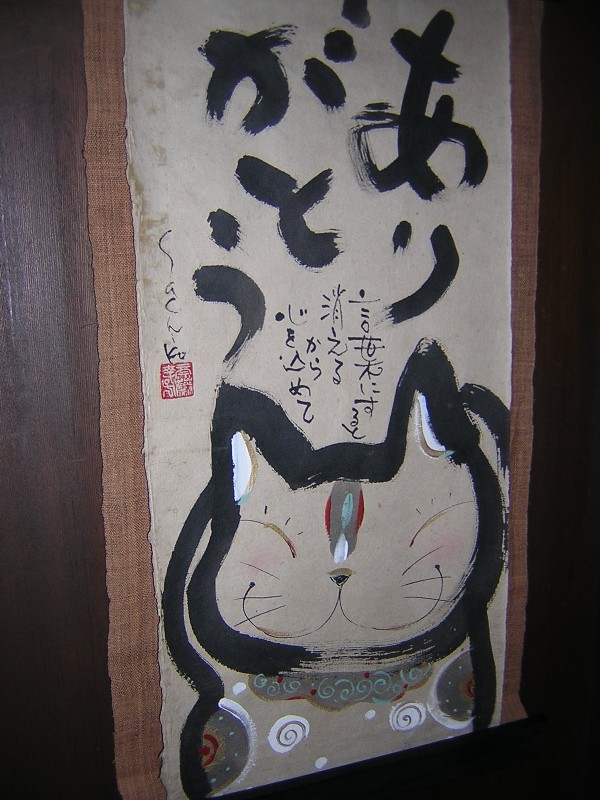 あり
がとう
言葉にすると
消える
から
心を込めて